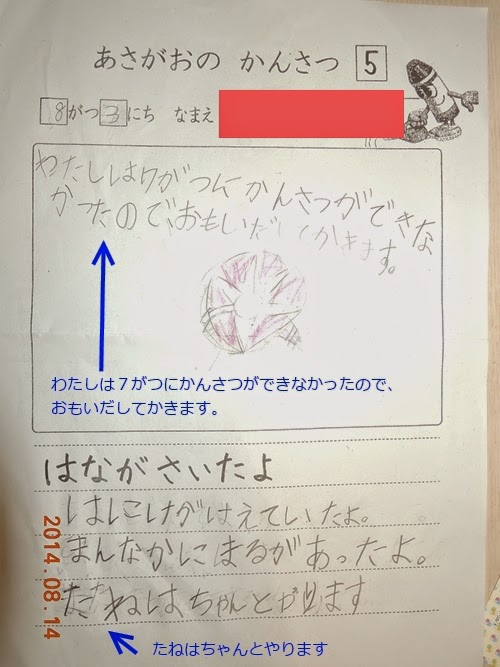 あさがおの かんさつ 5
8がつ3にち なまえ
わたしは7がつにかんさつができな
かったので、おもいだしてかきます。
わたしは７がつにかんさつができなかったので、
おもいだしてかきます。
はながさいたよ
はしにけがはえていたよ。
まんなかにまるがあったよ。
たねはちゃんとやります
たねはちゃんとやります
2014.08.14